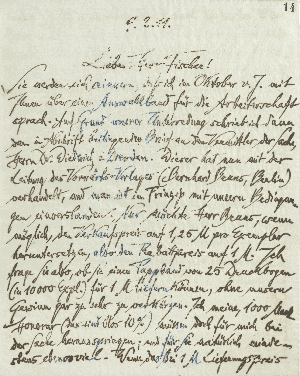 14
6. 2. 11.
Lieber Herr Fischer!
Sie werden sich erinnern, daß ich im Oktober v. J. mit
Ihnen über einen Auswahlband für die Arbeiterschaft
sprach. Auf Grund unserer Unterredung schrieb ich dann
den in Abschrift beiliegenden Brief an den Vermittler der Sache,
Herrn Dr. Diederich in Dresden. Dieser hat nun mit der
Leitung des Vorwärts-Verlages (Bernhard Bruns, Berlin)
verhandelt, und man ist im Prinzip mit unseren Bedingun-
gen einverstanden. Nur möchte Herr Bruns, wenn
möglich, den Verkaufspreis auf 1,25 M pro Exemplar
heruntersetzen, also den Rabattpreis auf 1 M. Ich
frage Sie also, ob Sie einen Pappband von 25 Druckbogen
(in 10000 Expl.) für 1 M liefern können, ohne unsern
Gewinn gar zu sehr zu verkürzen. Ich meine, 1000 Mark
Honorar (das sind also 10%) müssen doch für mich bei
der Sache herausspringen, und für Sie natürlich minde-
stens ebensoviel. Wenn das bei 1 M Lieferungspreis